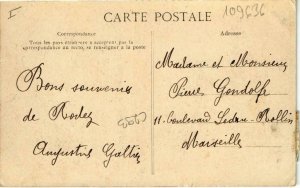 F
CARTE POSTALE
109636
Correspondance
Tous les pays étrangers n'acceptent pas la
correspondance au recto, se renseigner à la poste
Adresse
Bons souvenirs
de Rodez
Madame et Monsieur
Pierre Gondolfe
11 boulevard Ledru-Rollin
Marseille